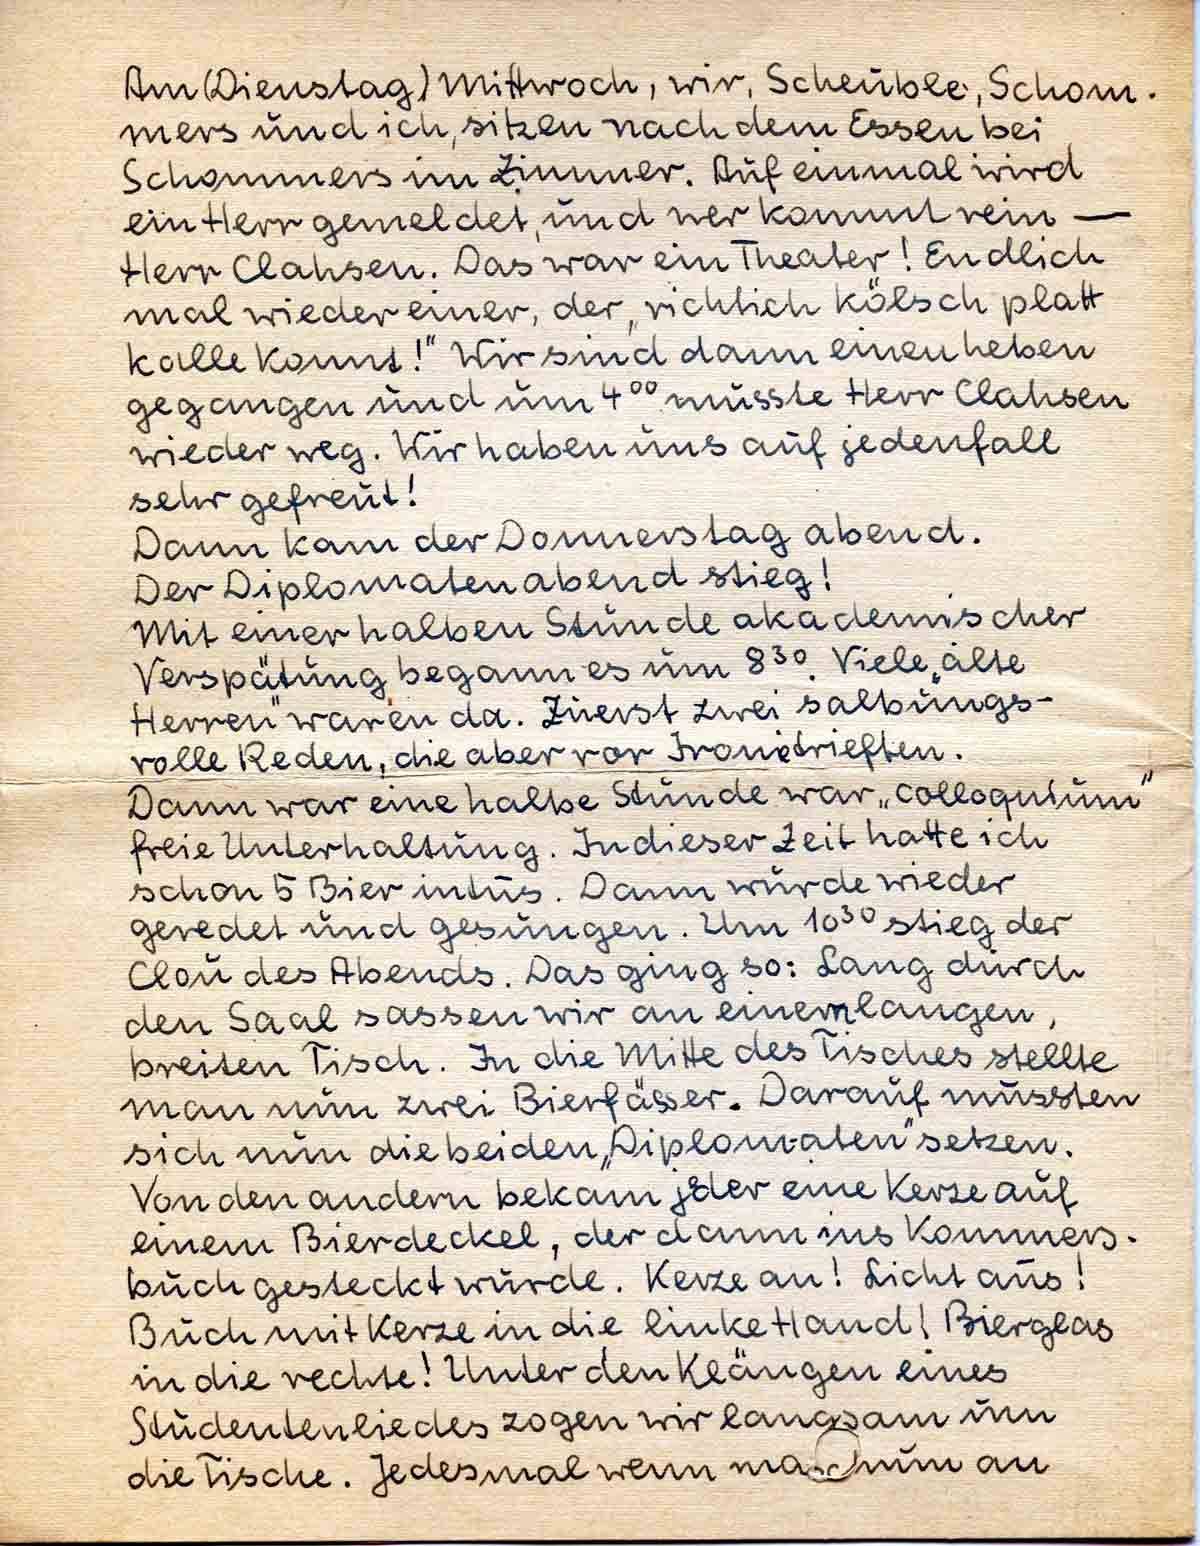 Am (Dienstag) Mittwoch, wir, Scheuble, Schom-
mers und ich, sitzen nach dem Essen bei
Schommers im Zimmer. Auf einmal wird
ein Herr gemeldet, und wer kommt rein —
Herr Clahsen. Das war ein Theater! Endlich
mal wieder einer, der „richtich kölsch platt
kalle konnt!" Wir sind dann einen heben
gegangen und um 4⁰⁰ musste Herr Clahsen
wieder weg. Wir haben uns auf jedenfall
sehr gefreut!
Dann kam der Donnerstag abend.
Der Diplomatenabend stieg!
Mit einer halben Stunde akademischer
Verspätung begann es um 8³⁰. Viele „alte
Herren" waren da. Zuerst zwei salbungs-
volle Reden, die aber vor Ironie trieften.
Dann war eine halbe Stunde war „colloquium"
freie Unterhaltung. In dieser Zeit hatte ich
schon 5 Bier intus. Dann wurde wieder
geredet und gesungen. Um 10³⁰ stieg der
Clou des Abends. Das ging so: Lang durch
den Saal sassen wir an einem langen,
breiten Tisch. In die Mitte des Tisches stellte
man nun zwei Bierfässer. Darauf mussten
sich nun die beiden „Diplomaten" setzen.
Von den andern bekam jeder eine Kerze auf
einem Bierdeckel, der dann ins Kommers-
buch gesteckt wurde. Kerze an! Licht aus!
Buch mit Kerze in die linke Hand! Bierglas
in die rechte! Unter den Klängen eines
Studentenliedes zogen wir langsam um
die Tische. Jedesmal wenn man nun an